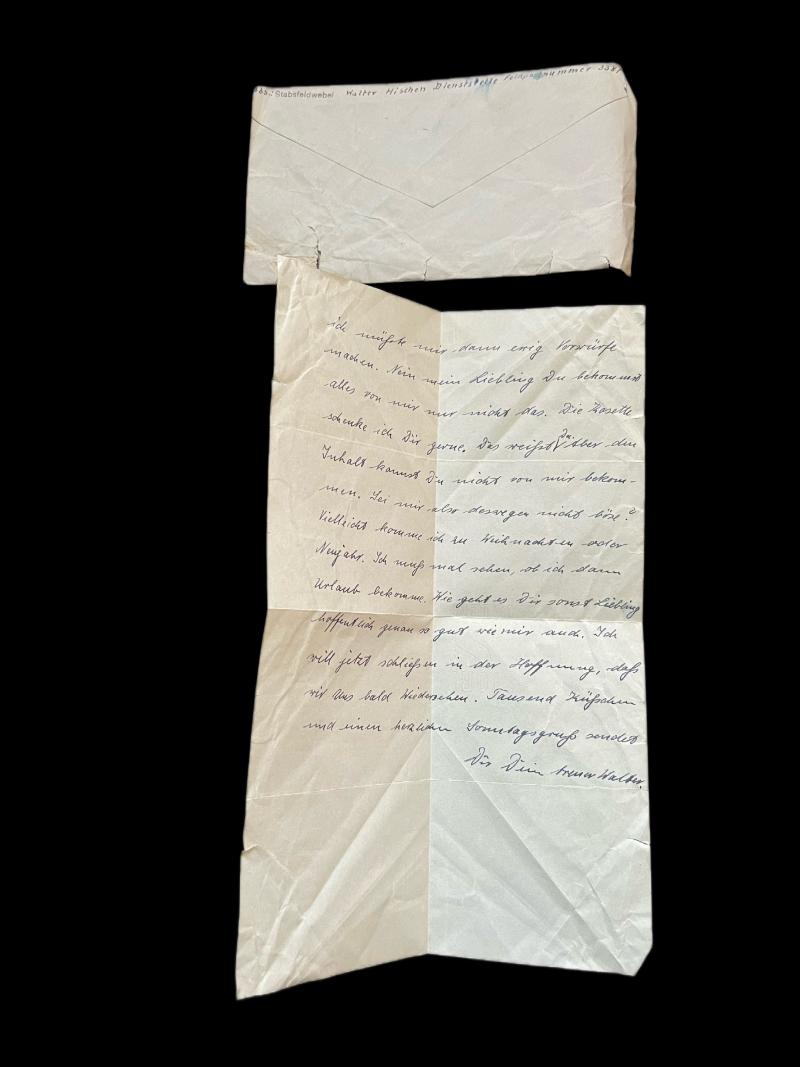 Abs.: Stabsfeldwebel Walter Mischen Dienststelle Feldpostnummer
ich müßte mir dann ewig Vorwürfe
machen. Nein mein Liebling Du bekommst
alles von mir nur nicht das. Die Kosette
schenke ich Dir gerne. Das weißt Du. Aber den
Inhalt kannst Du nicht von mir bekom-
men. Sei mir also deswegen nicht böse?
Vielleicht komme ich zu Weihnachten oder
Neujahr. Ich muß mal sehen, ob ich dann
Urlaub bekomme. Wie geht es Dir sonst Liebling
hoffentlich genau so gut wie mir auch. Ich
will jetzt schließen in der Hoffnung, daß
wir Uns bald Wiedersehen. Tausend Küßchen
und einen herzlichen Sonntagsgruß sendet
Dir Dein treuer Walter.